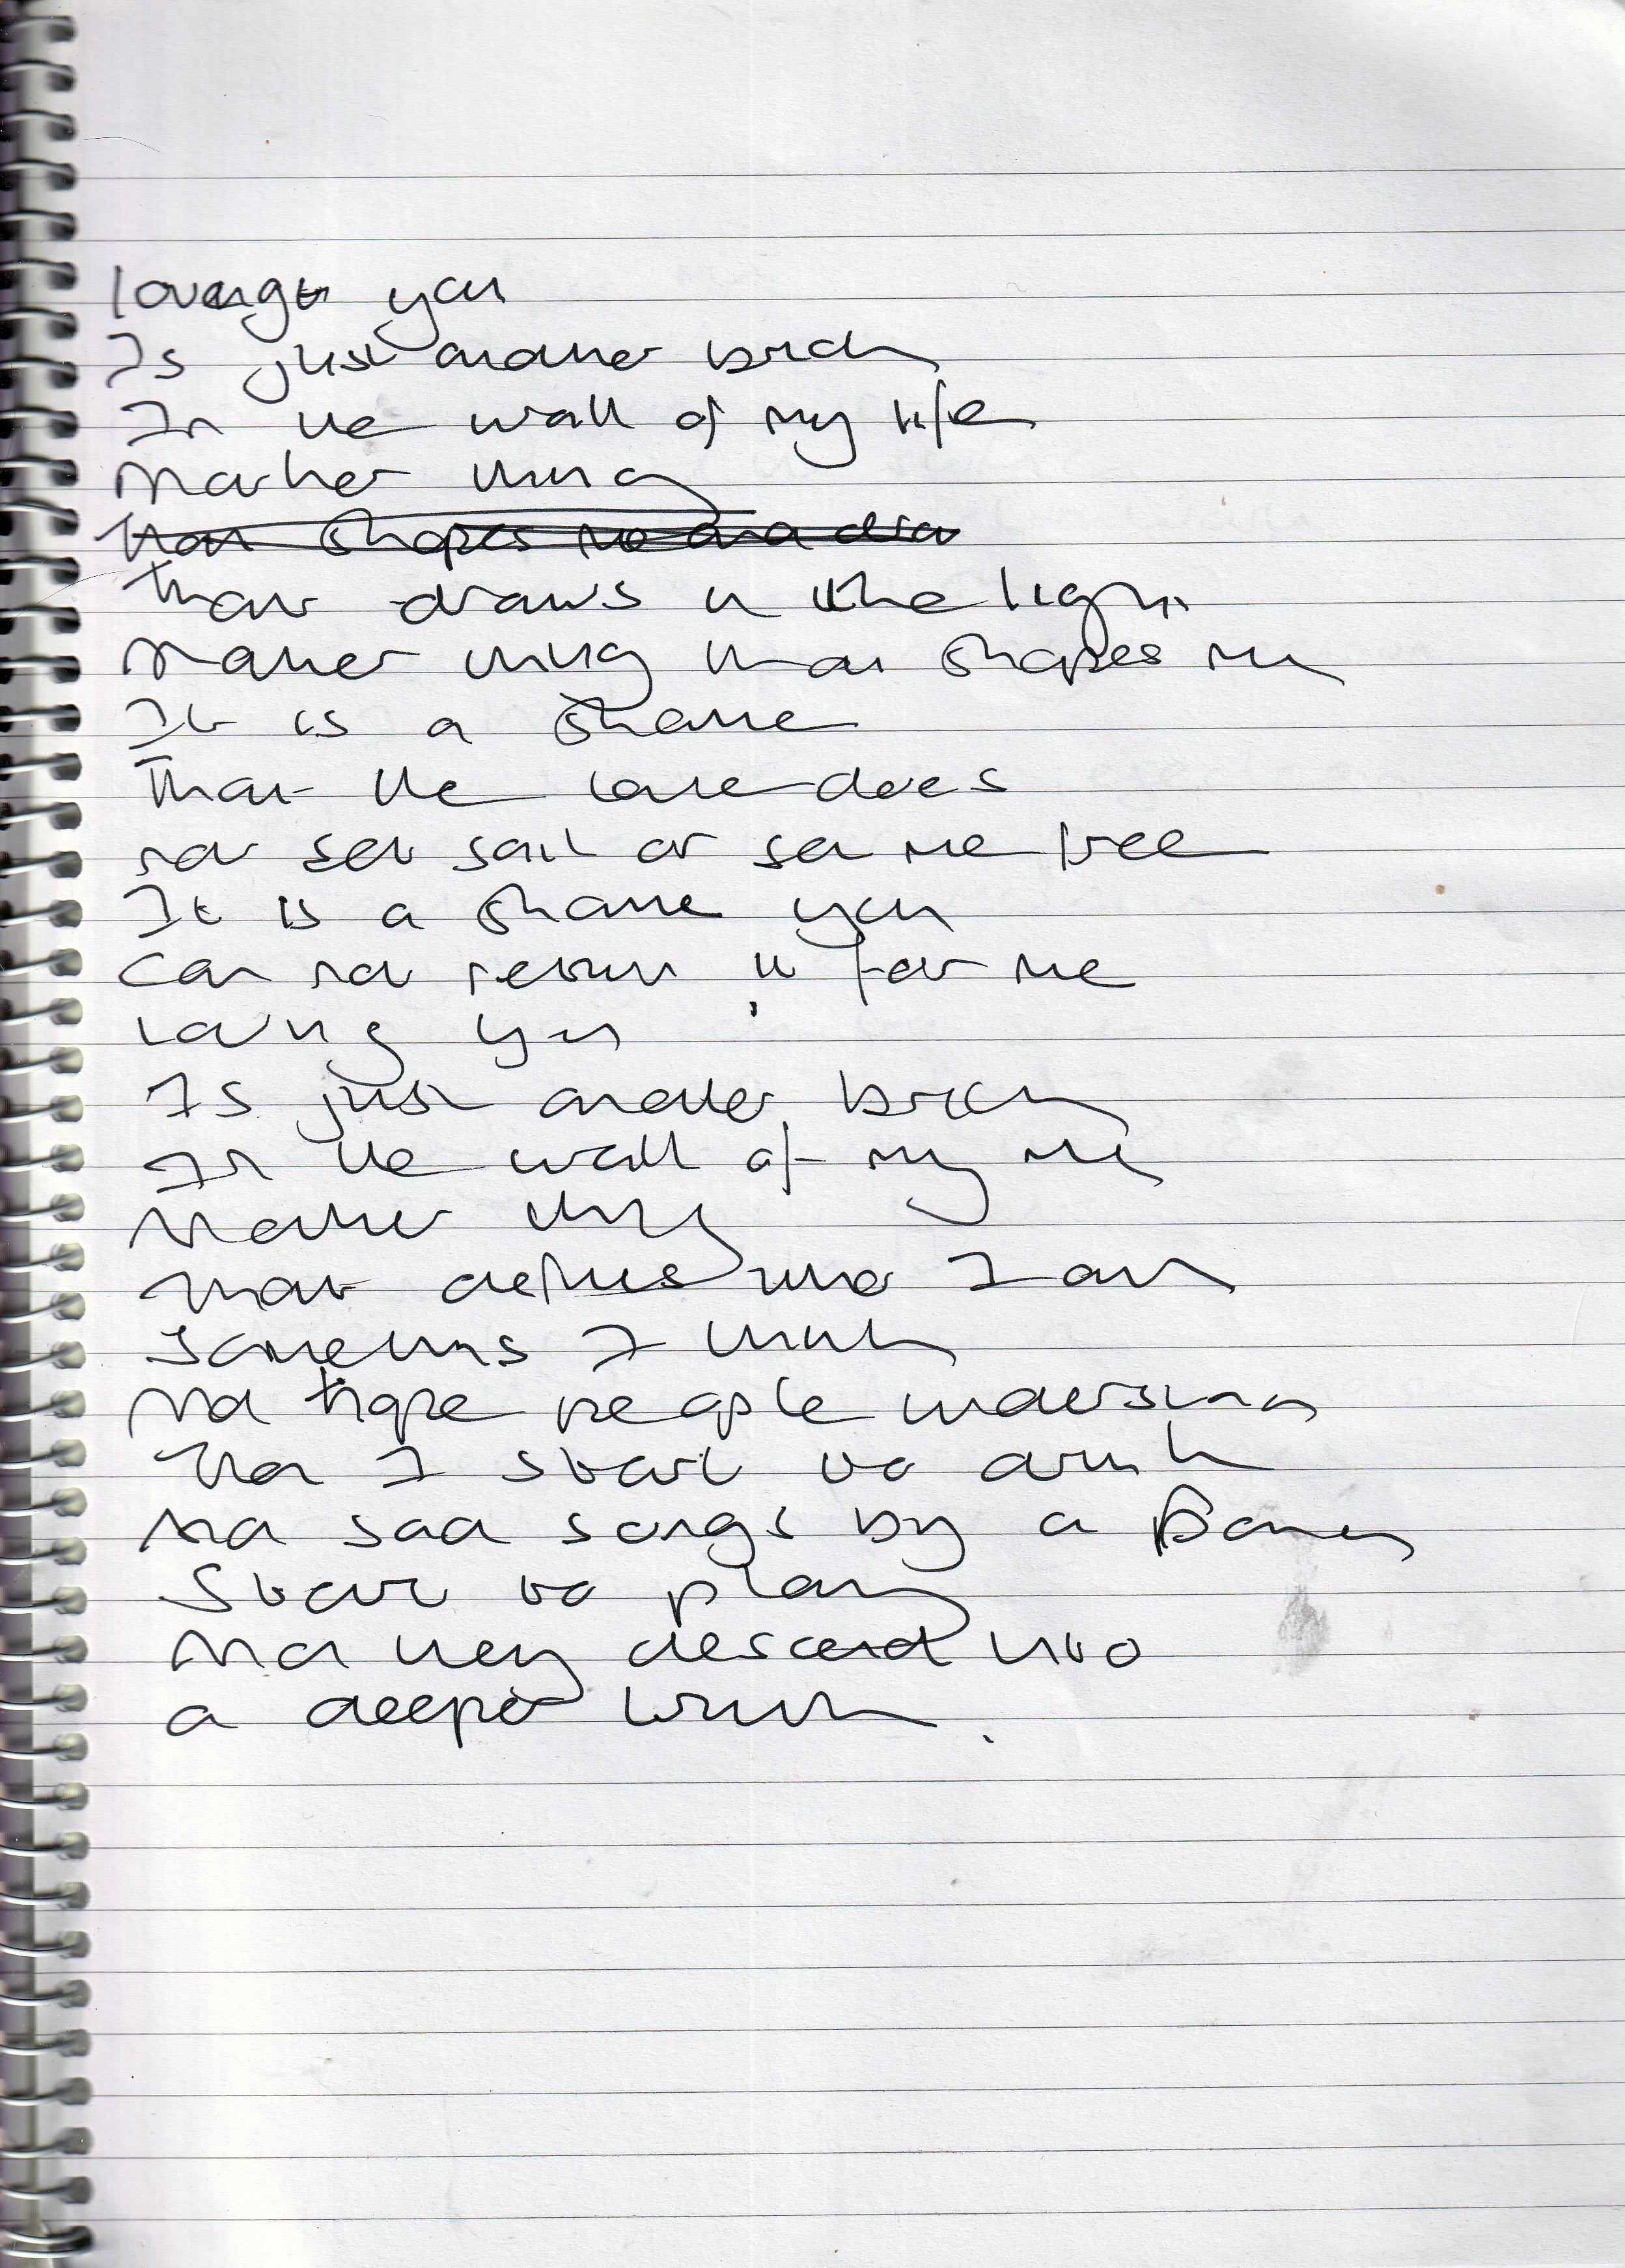 Loving you
Is just another brick
In the wall of my life
Another thing
that shapes me and a
that draws in the light
Another thing that shapes me
It is a shame
That the love does
not set sail or set me free
It is a shame you
can not return it for me
Loving you
Is just another brick
In the wall of my
Another thing
that defines who I am
Sometimes I think
And hope people understand
that I start to drink
And sad songs by a
Start to play
And they descend into
a deeper